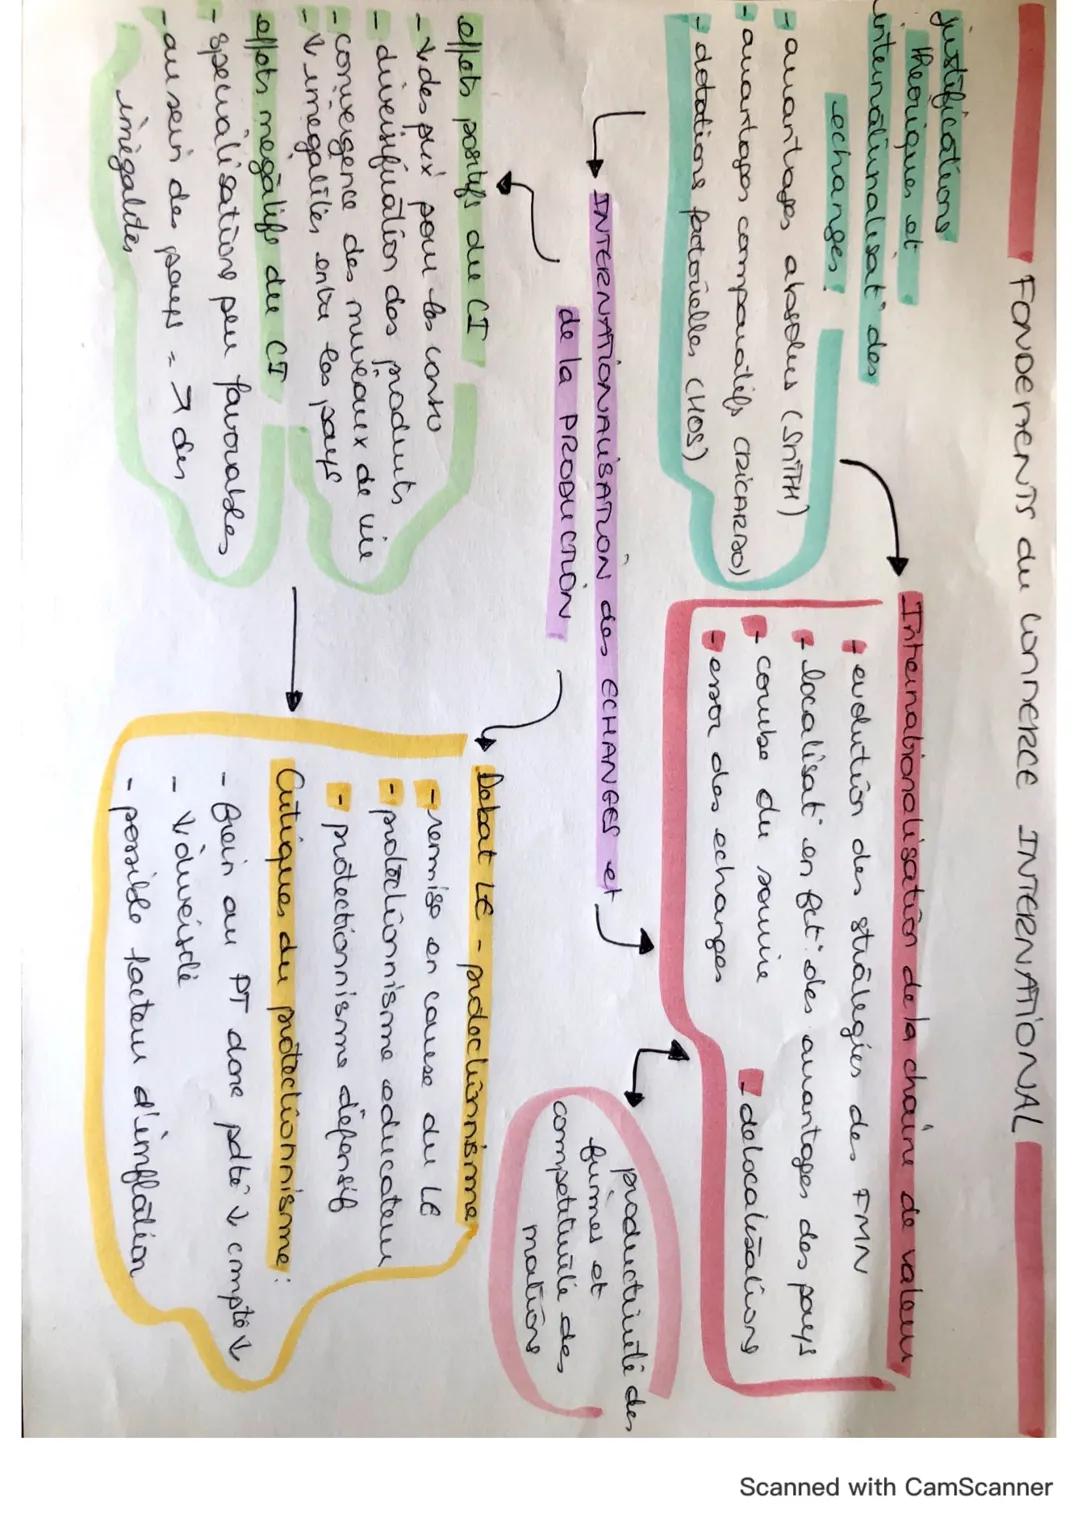 FONDEMENTS du COMMERCE INTERNATIONAL
justifications
theoriques et
internationalisat° des
echanges :
- avantages absolus (SMITH)
- avantages comparatifs (RICARDO)
- dotations factorielles (HOS)
Internationalisation de la chaine de valeur
- evolution des stratégies des FMN
- localisat° en fct° des avantages des pays
- courbe du sourire
- essor des echanges
- delocalisations
INTERNATIONALISATION des ECHANGES et
de la PRODUCTION
productivité des
firmes et
competitivité des
nations
effets positifs du CI
- ↓ des prix pour les conso
- diversification des produits
- convergence des niveaux de vie
- ↓ inégalités entre les pays
effets negatifs du CI
- specialisations peu favorables
- au sein des pays = ↗ des
inégalités
Debat LE - protectionnisme
- remise en cause du LE
- protectionnisme educateur
- protectionnisme défensif
Critiques du protectionnisme :
- frein au PT donc pdté ↓ compté ↓
- ↓ diversité
- possible facteur d'inflation
Scanned with CamScanner